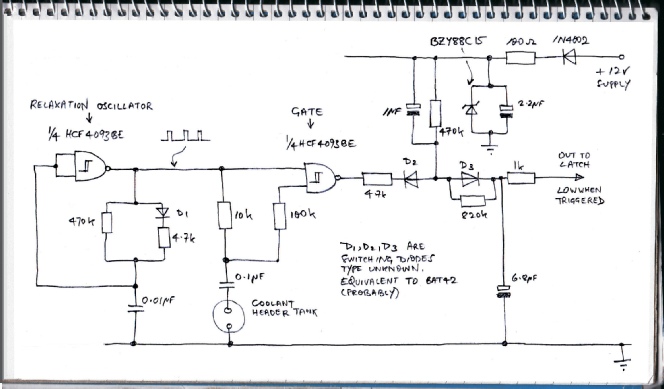 BZY88C15
100Ω
1N4002
+ 12V
SUPPLY
RELAXATION OSCILLATOR
1/4 HCF4093BE
GATE
1/4 HCF4093BE
1µF
470k
2.2µF
D2
D3
OUT TO
LATCH
LOW WHEN
TRIGGERED
1k
47k
820k
470k
D1
4.7k
10k
100k
D1, D2, D3 ARE
SWITCHING DIODES
TYPE UNKNOWN.
EQUIVALENT TO BAT42
(PROBABLY)
0.1µF
6.8µF
0.01µF
COOLANT
HEADER TANK